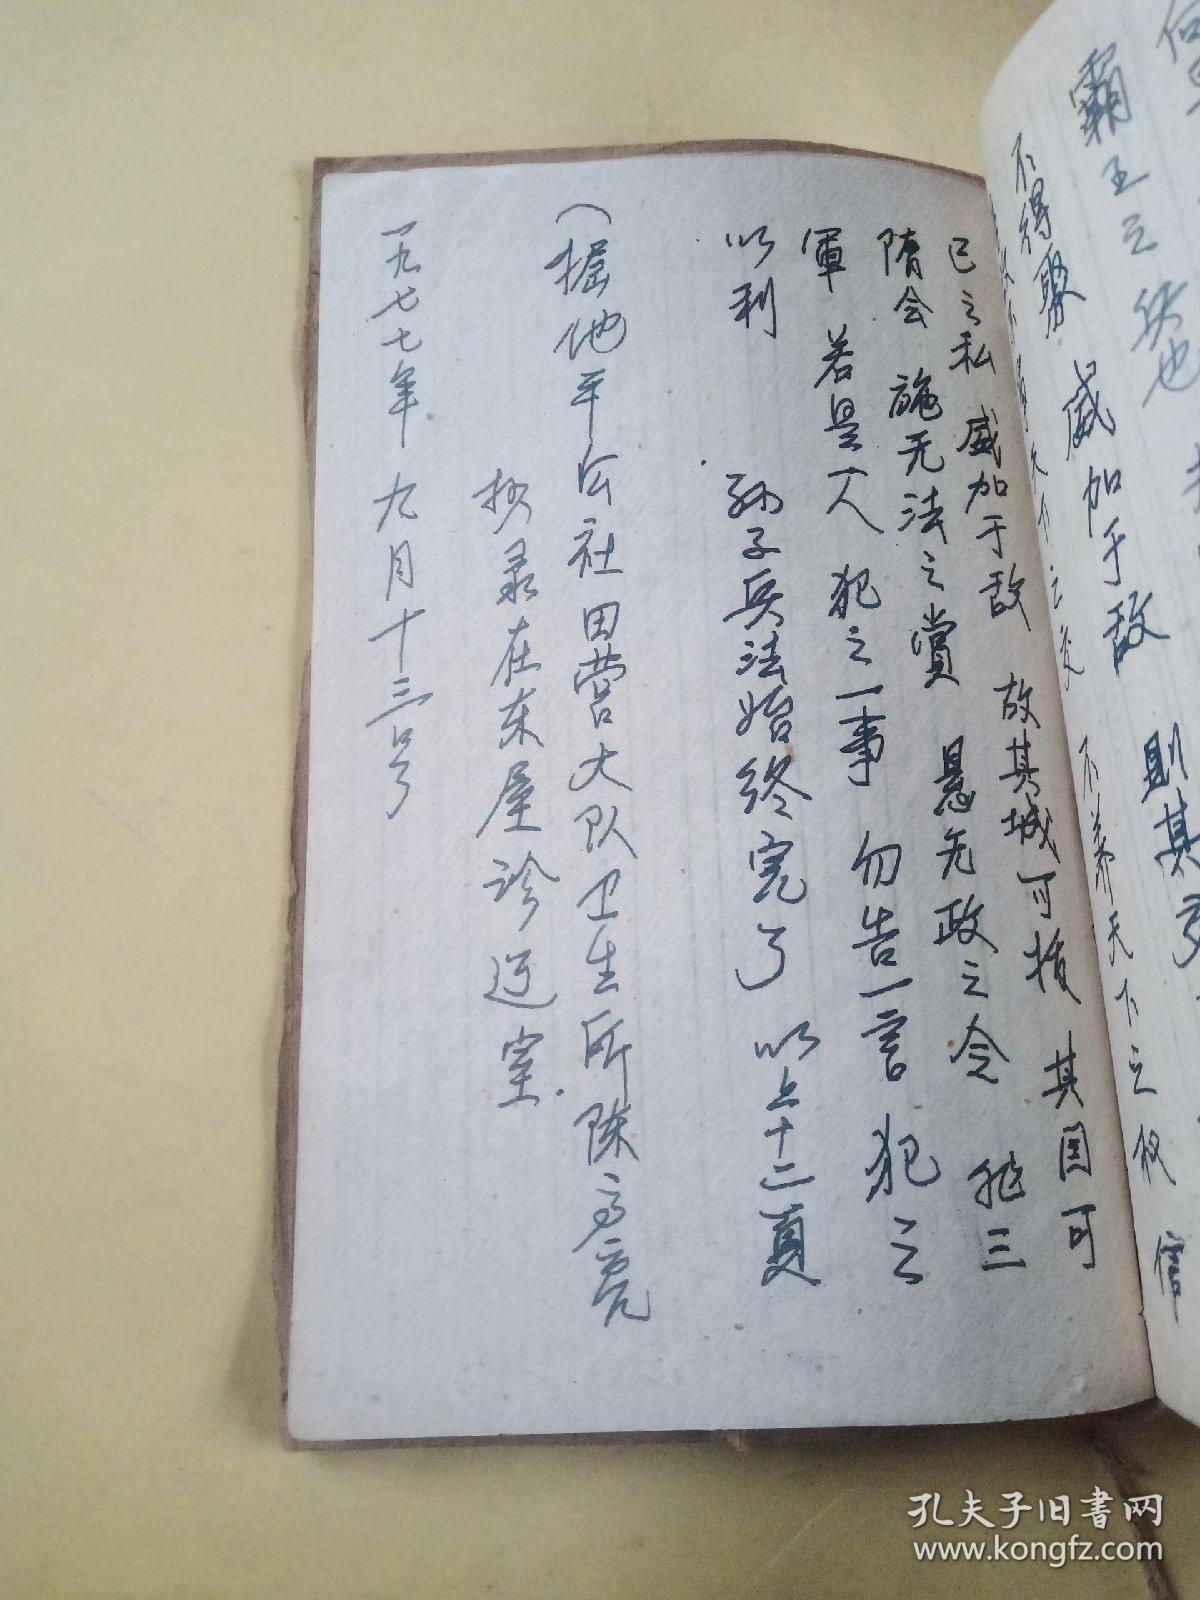 霸王之兵也
不得聚 威加于敌 则其
不养天下之权 信
己之私 威加于敌 故其城可拔 其国可
隋会 施无法之赏 悬无政之令 犯三
軍 若是一人 犯之一事 勿告一言 犯之
以利 孙子兵法始终完了 以上十二頁
(掘他平公社田营大队卫生所陈高亮
抄录在东屋诊迈室.
一九七七年九月十三号
孔夫子旧书网
www.kongfz.com